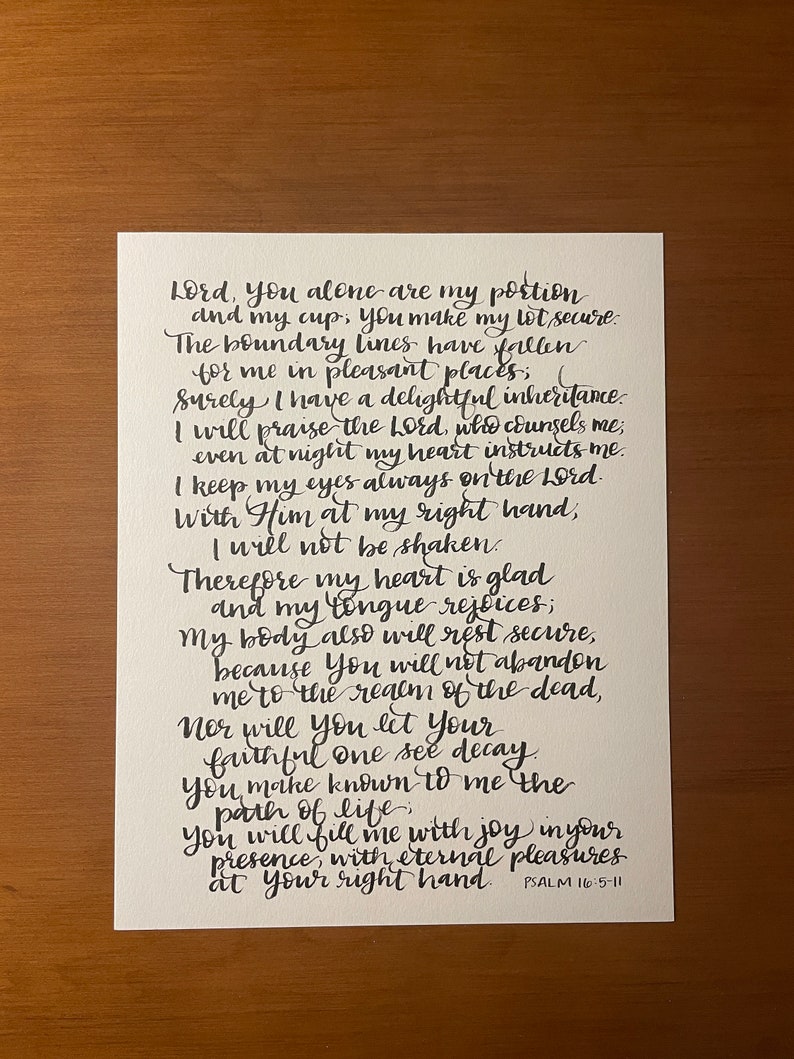 Lord, You alone are my portion
and my cup; You make my lot secure.
The boundary lines have fallen
for me in pleasant places;
Surely I have a delightful inheritance.
I will praise the Lord, who counsels me;
even at night my heart instructs me.
I keep my eyes always on the Lord.
With Him at my right hand,
I will not be shaken.
Therefore my heart is glad
and my tongue rejoices;
My body also will rest secure,
because You will not abandon
me to the realm of the dead,
Nor will You let Your
faithful one see decay.
You make known to me the
path of life;
You will fill me with joy in your
presence, with eternal pleasures
at Your right hand. PSALM 16:5-11